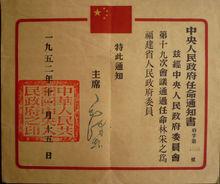 中央人民政府任命通知書
府字第
茲經中央人民政府委員會
第十九次會議通過任命林采之爲
福建省人民政府委員
特此通知
主席
毛澤東
一九五二年十一月十五日
中華人民共和國中央人民政府之印